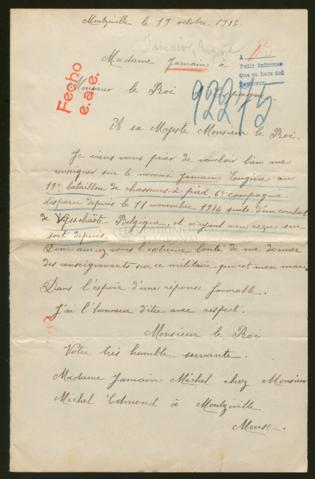 Montzéville le 19 octobre 1915.
Jamain, Eugène
Madame Jamain à
Monsieur le Roi
Fecho
e.a.e.
92275
A sa Majesté Monsieur le Roi.
Je viens vous prier de vouloir bien me
renseigner sur le nommé Jamain Eugène au
19e bataillon de chasseurs à pied 6e compagnie
disparu depuis le 11 novembre 1914 suite d'un combat
de Belgique, et n'ayant rien reçu sur
sort depuis.
Donc aurez vous l'extrême bonté de me donner
des renseignements sur ce militaire qui est mon mari
Dans l'espoir d'une réponse favorable.
J'ai l'honneur d'être avec respect.
Monsieur le Roi
Votre très humble servante.
Madame Jamain Michel chez Monsieur
Michel Edmond à Montzéville
Meuse.